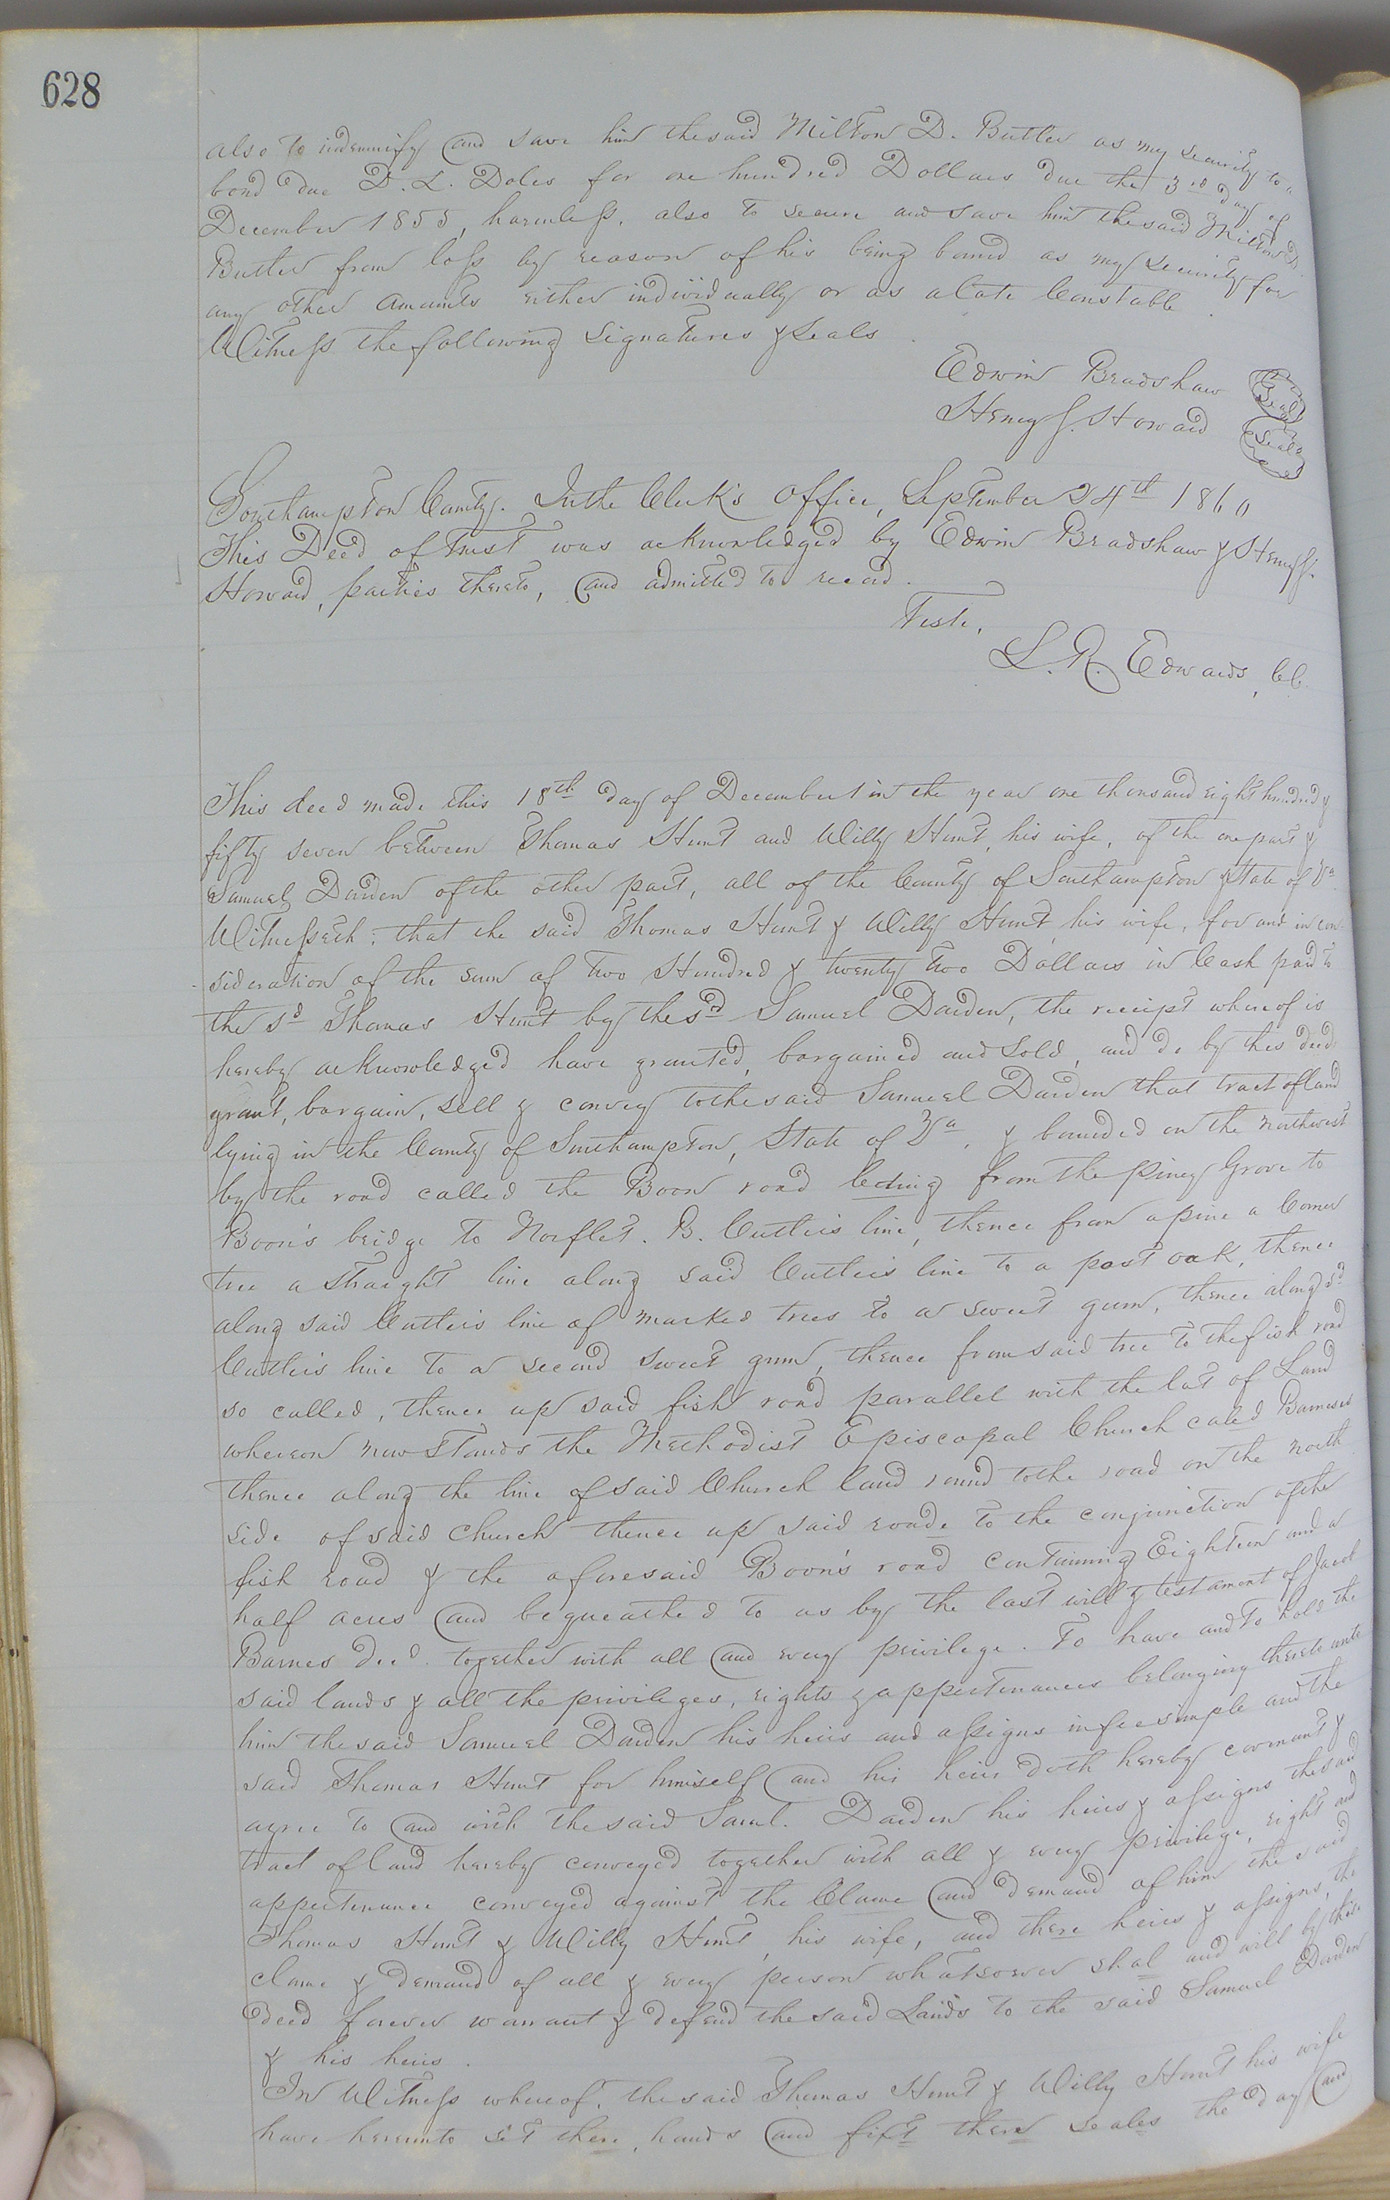 628
also to indemnify and save him the said Milton D. Butler as my security to a
bond due D. L. Doles for one hundred Dollars due the 3rd day of
December 1855, harmless. also to secure and save him the said Milton D.
Butler from loss by reason of his being bound as my security for
any other amounts either individually or as a late Constable
Witness the following signatures & seals.
Edwin Bradshaw Seal
Henry J. Howard Seal
Southampton County. In the Clerk's Office, September 24th 1860
This Deed of Trust was acknowledged by Edwin Bradshaw & Henry J.
Howard, parties thereto, and admitted to record.
Teste,
L. R. Edwards, CC.
This deed made this 18th day of December in the year one thousand eight hundred &
fifty seven between Thomas Hunt and Willy Hunt, his wife, of the one part &
Samuel Darden of the other part, all of the County of Southampton & State of Va
Witnesseth; that the said Thomas Hunt & Willy Hunt, his wife, for and in con-
sideration of the sum of Two Hundred & twenty two Dollars in Cash paid to
the sd Thomas Hunt by the sd Samuel Darden, the receipt whereof is
hereby acknowledged have granted, bargained and sold, and do by this deed
grant, bargain, sell & convey to the said Samuel Darden that tract of land
lying in the County of Southampton, State of Va, & bounded on the northwest
by the road called the Boon road leding from the Piney Grove to
Boon's bridge to Norflet. B. Cutler's line, thence from a pine a corner
tree a straight line along said Cutler's line to a post oak, thence
along said Cutler's line of marked trees to a sweet gum, thence along sd
Cutler's line to a second sweet gum, thence from said tree to the fish road
so called, thence up said fish road parallel with the lot of Land
whereon now stands the Methodist Episcopal Church caled Barneses
thence along the line of said Church land round to the road on the north
side of said church thence up said roade to the conjunction of the
fish road & the aforesaid Boon's road containing Eighteen and a
half acres and bequeathed to us by the last will & testament of Jacob
Barnes decd. together with all and every privilege. To have and to hold the
said lands & all the privileges, rights & appertenances belonging thereto unto
him the said Samuel Darden his heirs and assigns in fee simple and the
said Thomas Hunt for himself and his heirs doth hereby covenant &
agree to and with the said Saml. Darden his heirs & assigns the said
tract of land hereby conveyed together with all & every privilege, right and
appertenance conveyed against the Clame and demand of him the said
Thomas Hunt & Willy Hunt, his wife, and there heirs & assigns, the
clame & demand of all & every person whatsoever shal and will by this
deed forever warrant & defend the said Lands to the said Samuel Darden
& his heirs.
In Witness whereof, the said Thomas Hunt & Willy Hunt his wife
have hereunto set there, hands and fixt there seales the day and